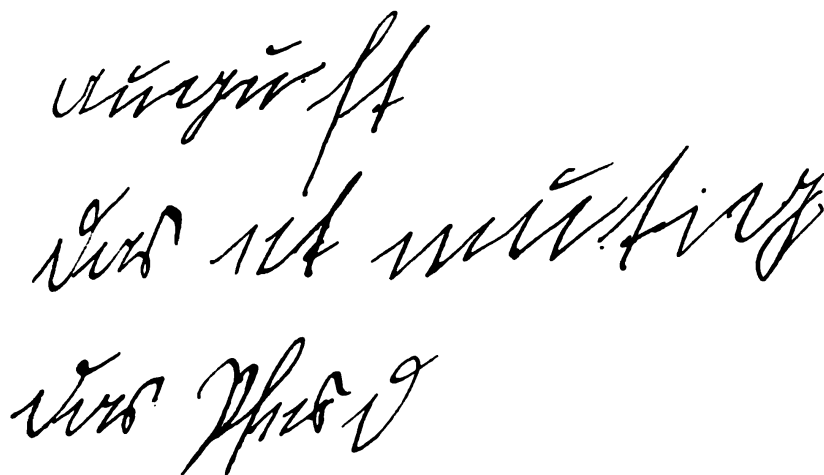 august
das mutig
das Pferd